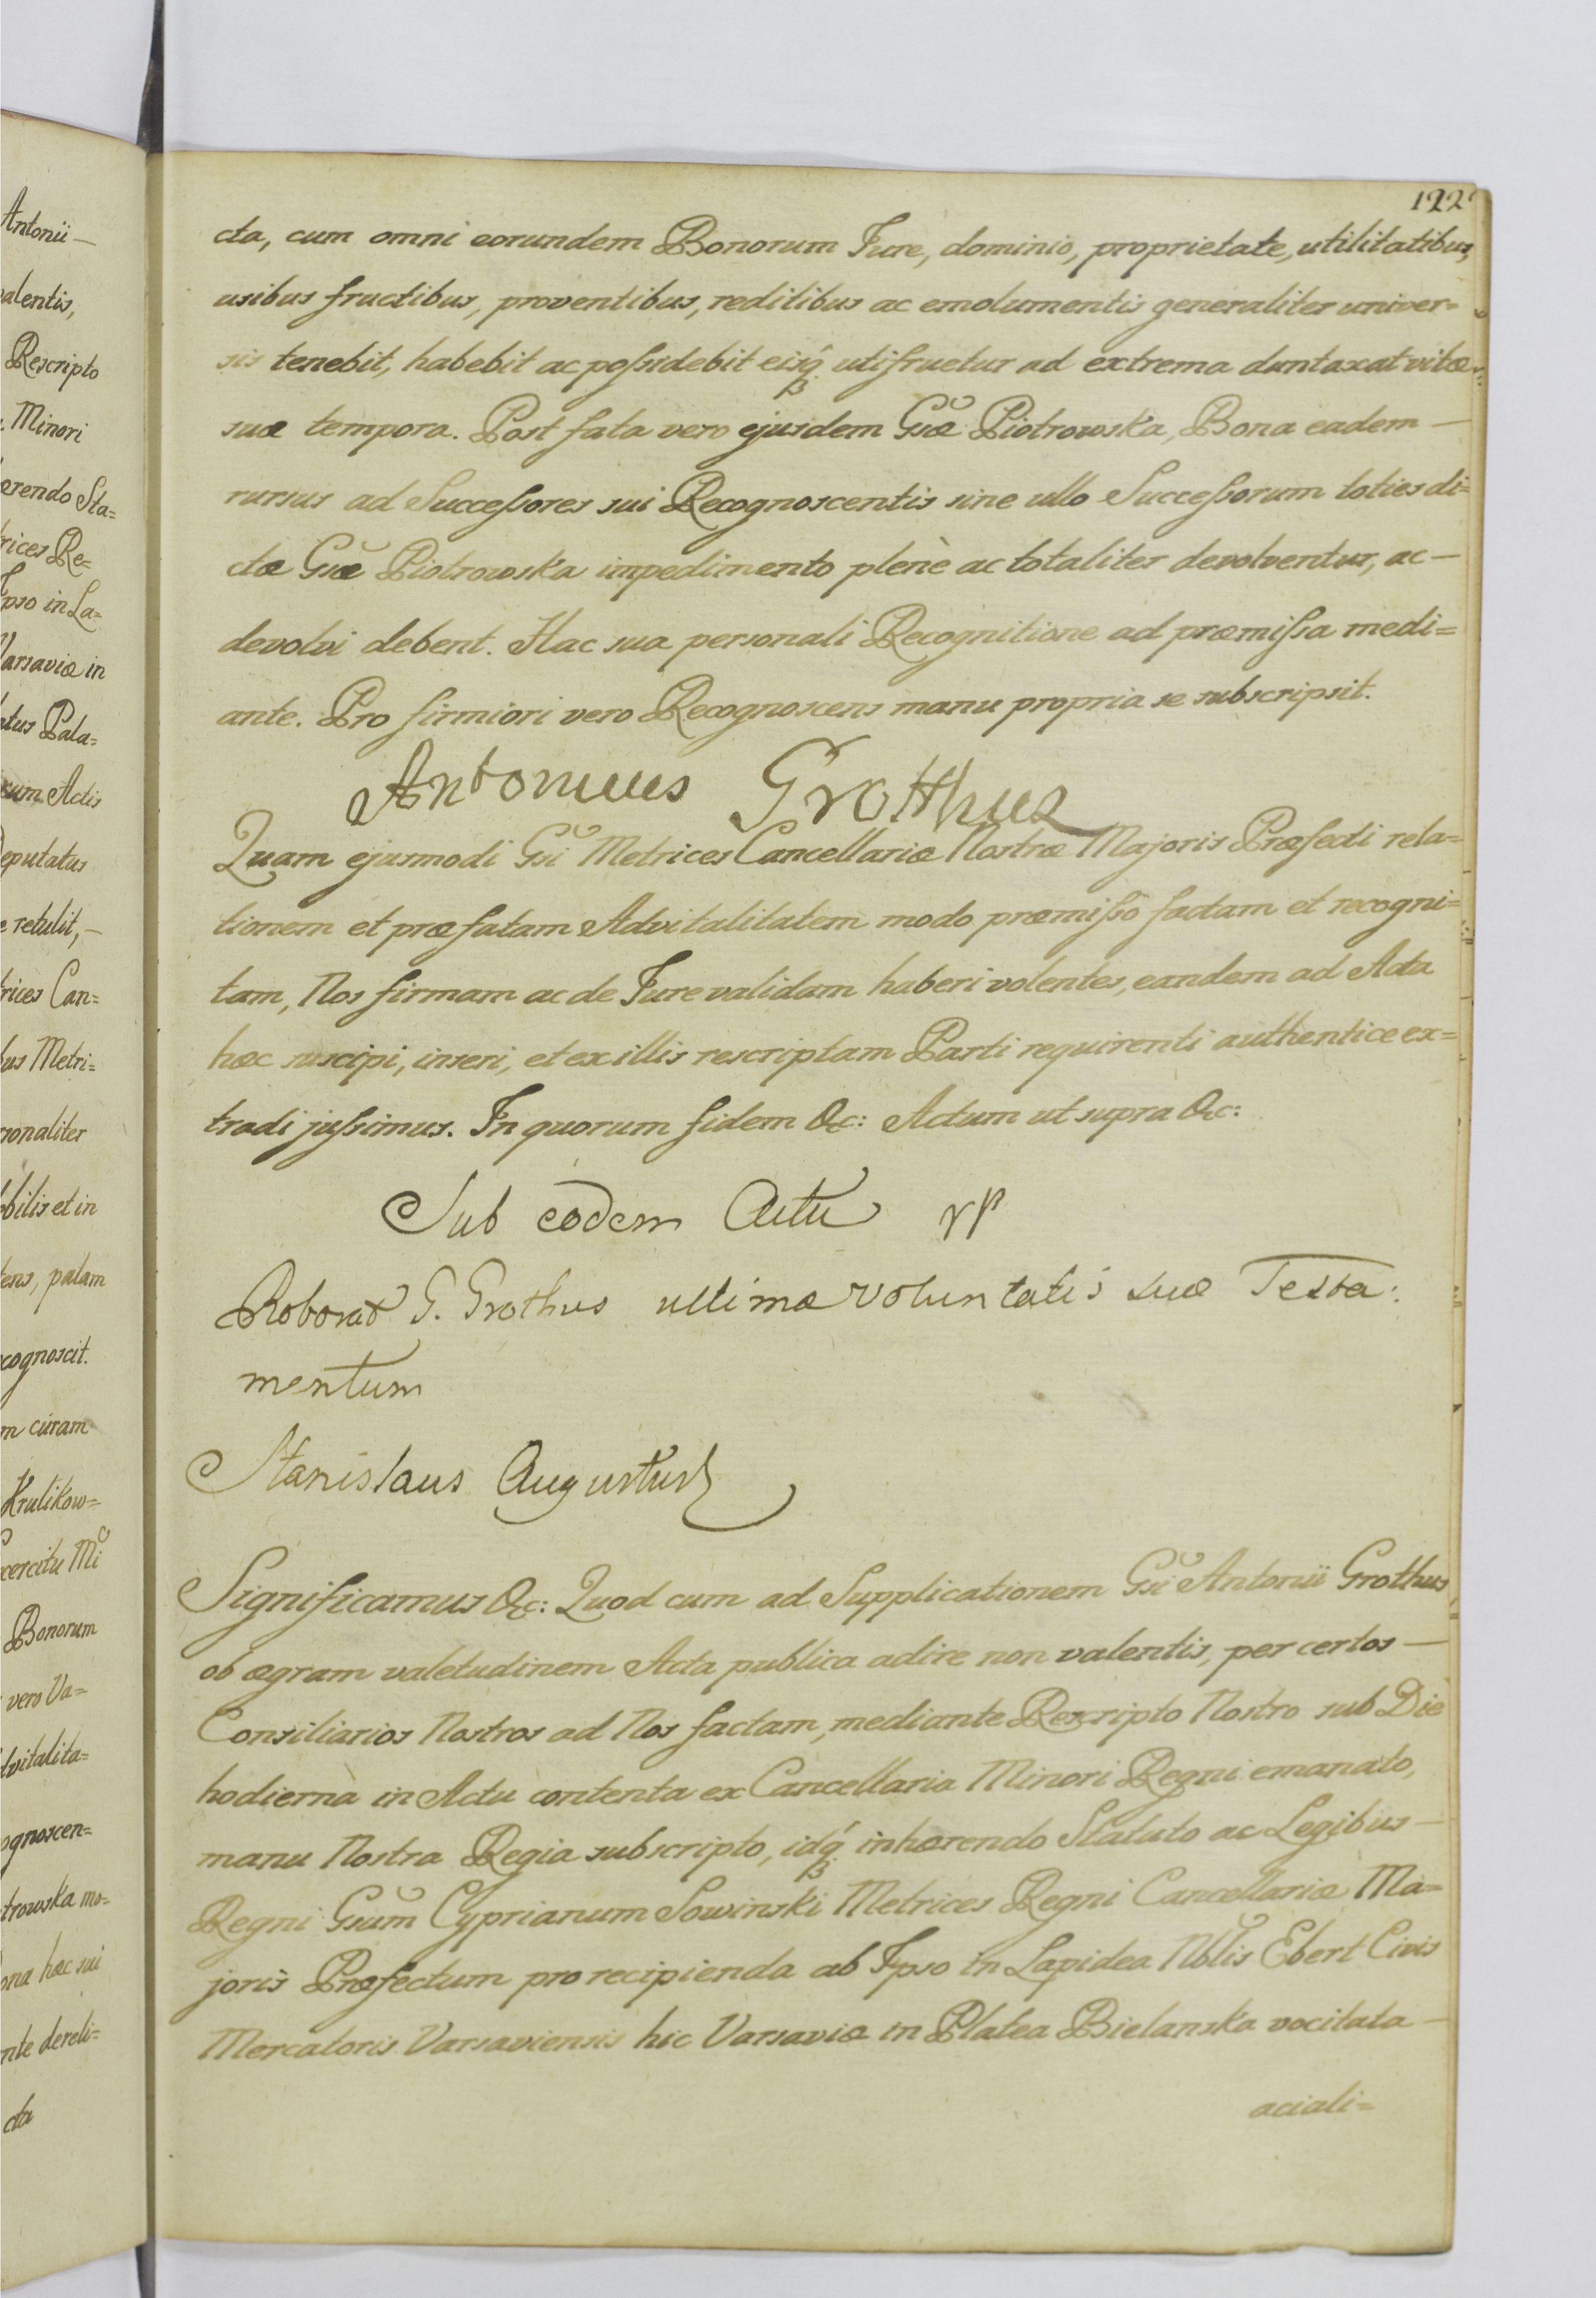 Antonii —
valentis,
Rescripto
Minori
erendo Sta=
rices Re=
Ipso in La=
Varsaviæ in
Pala=
cum Actis
Deputatus
e retulit, —
rices Can=
bus Metri=
rsonaliter
bilis et in
tens, palam
cognoscit.
m curam
Krulikow=
xercitu
Bonorum
vero Va=
dvitalita=
ognoscen=
trowska mo=
ona hæc sui
nte dereli=
cta
122
cta, cum omni eorundem Bonorum Jure, dominio, proprietate, utilitatibus,
usibus fructibus, proventibus, reditibus ac emolumentis generaliter univer=
sis tenebit, habebit ac possidebit eisq́ utifruetur ad extrema duntaxat vitæ
suæ tempora. Post fata vero ejusdem Gsæ Piotrowska, Bona eadem —
rursus ad Successores sui Recognoscentis sine ullo Successorum toties di=
ctæ Gsæ Piotrowska impedimento plenè ac totaliter devolventur, ac —
devolvi debent. Hac sua personali Recognitione ad præmissa medi=
ante. Pro firmiori vero Recognoscens manu propria se subscripsit.
Antonius Grotthus
Quam ejusmodi Gsi Metrices Cancellariæ Nostræ Majoris Præfecti rela=
tionem et præfatam Advitalitatem modo præmisso factam et recogni=
tam, Nos firmam ac de Jure validam haberi volentes, eandem ad Acta
hæc suscipi, inseri, et ex illis rescriptam Parti requirenti authentice ex=
tradi jussimus. In quorum fidem &c: Actum ut supra &c:
Sub eodem Actu
Roborat G. Grothus ultimæ voluntatis suæ Testa:
mentum
Stanislaus Augustus
Significamus &c: Quod cum ad Supplicationem Gsi Antonii Grothus
ob ægram valetudinem Acta publica adire non valentis, per certos —
Consiliarios Nostros ad Nos factam, mediante Rescripto Nostro sub Die
hodierna in Actu contenta ex Cancellaria Minori Regni emanato,
manu Nostra Regia subscripto, idq́ inhærendo Statuto ac Legibus —
Regni Gsum Cyprianum Sowinski Metrices Regni Cancellariæ Ma=
joris Præfectum pro recipienda ab Ipso in Lapidea Nblis Ebert Civis
Mercatoris Varsaviensis hic Varsaviæ in Platea Bielanska vocitata —
aciali=